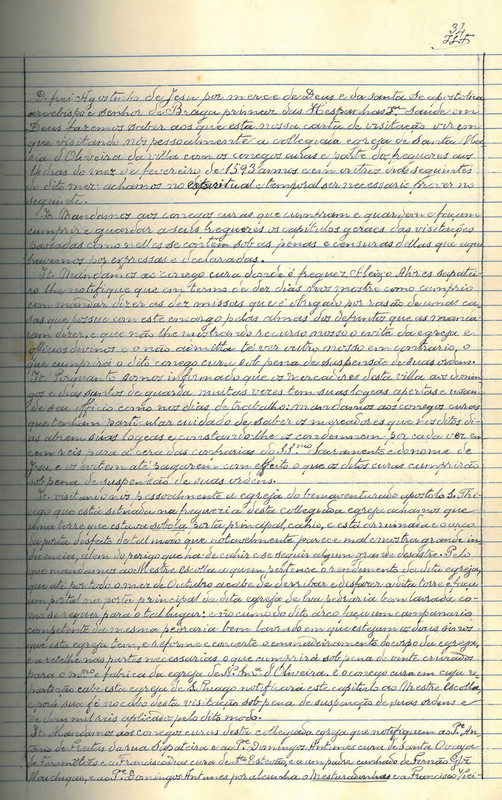 34
D. frei Agostinho de Jesu por merce de Deus e da santa Se apostolica
arcebispo e senhor de Braga primaz das Hespanhas Saude em
Deus fazemos saber aos que esta nossa carta de visitação virem
que visitando nós pessoalmente a collegiada egreja de Santa Ma
ria d'Oliveira da villa com os conegos curas e parte dos freguezes aos
dias do mez de fevereiro de 1593 annos e em outros dias seguintes
do dito mez achamos no espiritual e temporal ser necessario prover no
seguinte.
It. Mandamos aos conegos curas que cumpram e guardem e façam
cumprir e guardar a seus freguezes os capitulos geraes das visitações
passadas como nelles se contém sob as penas e censuras dellas que aqui
havemos por expressas e declaradas.
It. Mandamos ao conego cura donde é freguez Alvres sapatei
ro lhe notifique que em termo de dez dias lhe mostre como cumpriu
com mandar dizer as dez missas que é obrigado por rasão de umas ca
sas que possue com este encargo pelas almas dos defuntos que as manda
ram dizer, e que não lhe mostrando recurso nosso o evite da egreja e
officios divinos e o não admitta té ver outro nosso em contrario, o
que cumprirá o dito conego cura sob pena de suspensão de suas ordens.
It. Porquanto somos informado que os mercadores desta villa aos domin
gos e dias santos de guarda muitas vezes tem suas logeas apertas e usam
de seu officio como nos dias de trabalho: mandamos aos conegos curas
que tenham particular cuidado de saber os mercadores que nos ditos di
as abrem suas logeas e constando-lhe os condemnem por cada vez em
cem reis para a cera das confrarias do SSmo Sacramento e do nome de
Jesu, e os evitem até pagarem com effeito o que os ditos curas cumprirão
sob pena de suspensão de suas ordens.
It. visitando nós pessoalmente a egreja do bemaventurado apostolo S. Thi
ago que está situada na freguezia desta collegiada egreja achamos que
uma torre que estava sobola porta principal, cahio, e está arruinada e o arco
da porta desfeito de tal modo que notavelmente parece mal e mostra grande in
decencia, alem do perigo que ha de cahir e se seguir algum grande desastre. Pelo
que mandamos ao Mestre Escolla a quem pertence o rendimento da dita egreja,
que até por todo o mez de Outubro acabe de derribar e desfazer a dita torre e faça
um portal na porta principal da dita egreja de boa pedraria bem lavrada co
mo se requer para o tal lugar: e no cimo do dito arco faça um campanario
competente da mesma pedraria bem lavrado em que estejam os dous sinos
que esta egreja tem, e reforme e concerte o emmadeiramento do corpo da egreja,
e a retelhe nas partes necessarias, o que cumprirá sob pena de vinte cruzados
para o e fabrica da egreja de N. Snra d'Oliveira, e o conego cura em cuja re
partição cabe esta egreja de S. Tiago notificará este capitulo ao Mestre Escolla,
e porá sua fé no cabo desta visitação sob pena de suspensão de suas ordens e
de dous mil réis aplicados pelo dito modo.
It. Mandamos aos conegos curas desta collegiada egreja que notifiquem ao Pe. An
tonio de Freitas da rua Sapateira e ao Pe. Domingos Antunes cura de Santa Ovaya
de e a Francisco cura de Sto Estevão, e a cunhado de Fernão Glz
Mouchique, e ao Pe. Domingos Antunes por alcunha o e a Francisco